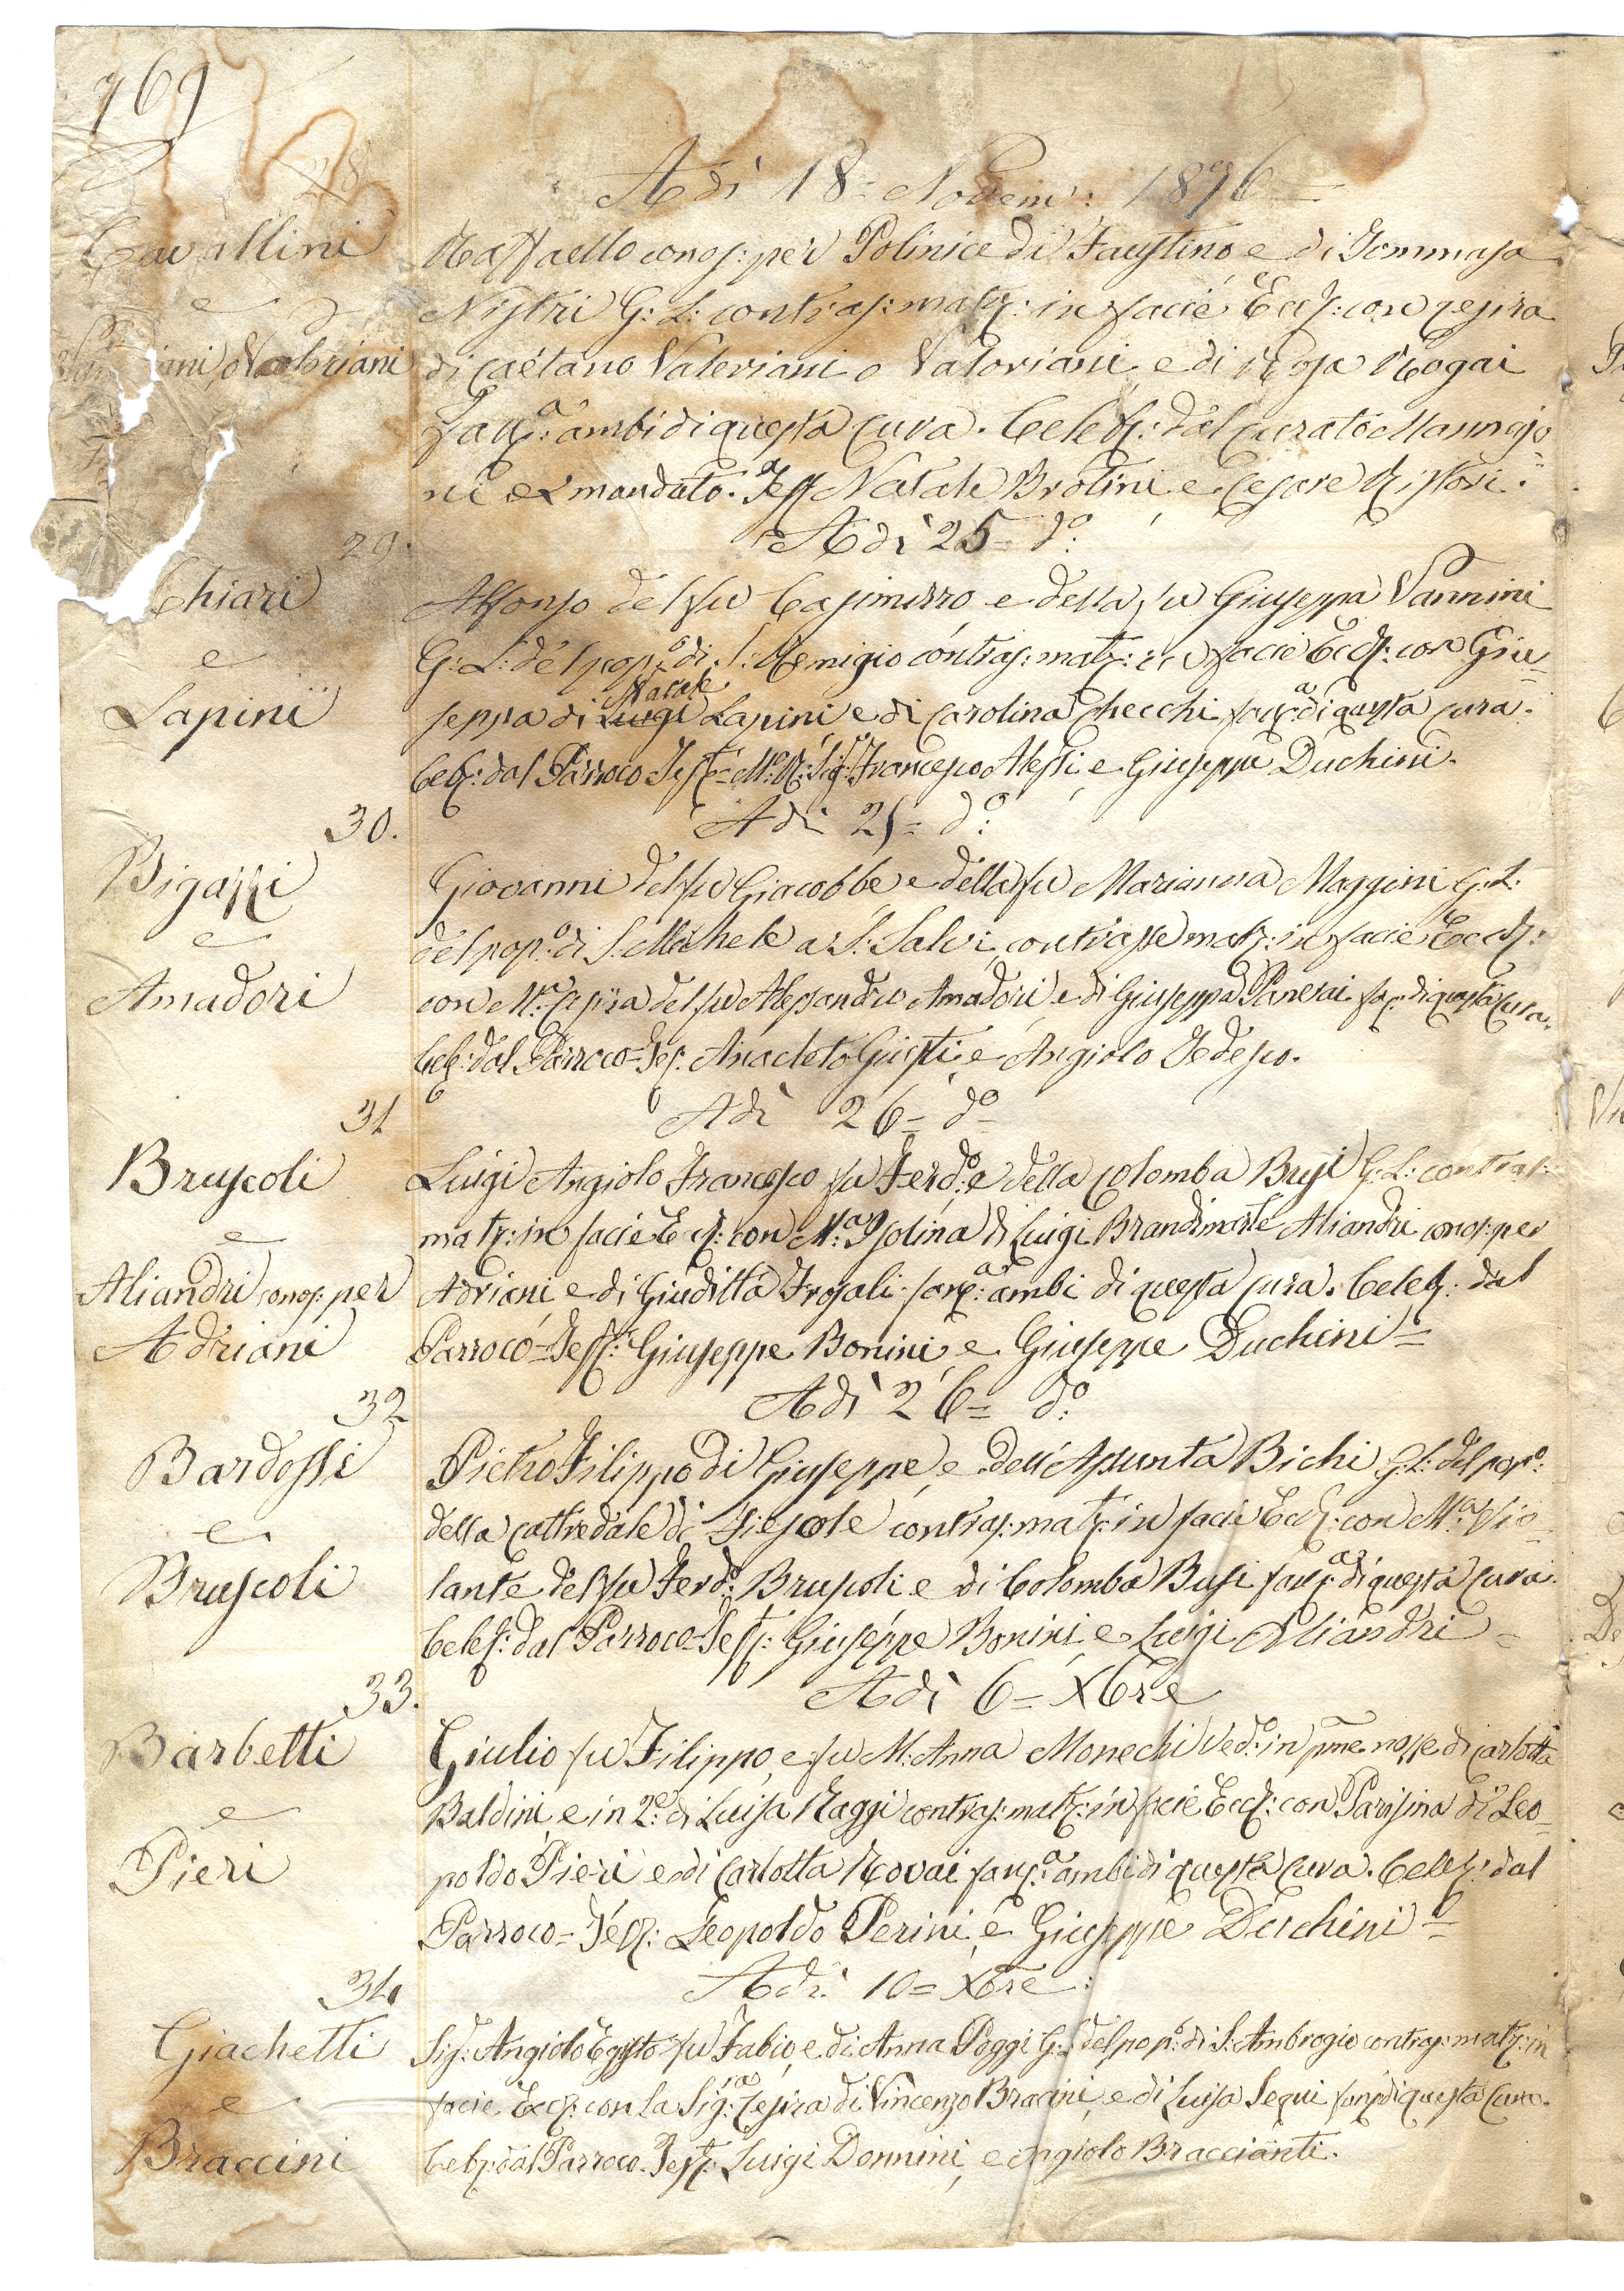 769
28
Adì 18= Novem: 1876=
Cavallini
e
iani o Valoriani
Raffaello conos: per Polinice di Faustino e di Tommasa
Nistri G: L: contras: matr: in facie Eccl: con Zefira
di Gaetano Valeriani o Valoriani e di Rosa Rogai
fanc:ᵃ ambi di questa Cura. Celebr: dal Curato Mannajo=
ni ex mandato. Test Natale Brotini e Cesare Ristori.
Adì 25= dº:
29.
Chiari
e
Lapini
Alfonso del fu Casimirro e della fu Giuseppa Vannini
G: L: del popº: di S: Remigio contras: matr: in facie Eccl: con Giu=
Natale
seppa di Luigi Lapini e di Carolina Checchi fancᵃ di questa cura.
Celebr: dal Parroco Test: M: R: Sig: Francesco Alessi, e Giuseppe Duchini.
Adì 25= dº:
30.
Bigazzi
e
Amadori
Giovanni del fu Giacobbe e della fu Marianna Maggini G: L:
del popº: di S: Michele a S: Salvi, contrasse matr: in facie Eccl:
con Mᵃ: Zefira del fu Alessandro Amadori, e di Giuseppa Panerai fanc: di questa Cura.
Celeb: dal Parroco= Tes: Anacleto Giusti, e Angiolo Tedesco.
Adì 26= dº=
31
Bruscoli
e
Aliandri conos: per
Adriani
Luigi Angiolo Francesco fu Ferdº: e della Colomba Busi G: L: contras:
matr: in facie Eccl: con Mᵃ: Isolina di Luigi Brandimarte Aliandri conos: per
Adriani e di Giuditta Frosali fancᵃ: ambi di questa Cura. Celeb: dal
Parroco= Test: Giuseppe Bonini, e Giuseppe Duchini=
Adì 26= dº:
32
Bardossi
e
Bruscoli
Pietro Filippo di Giuseppe, e dell'Assunta Bichi G: L: del popº:
della Cattredale di Fiesole contras: matr: in facie Eccl: con Mᵃ: Vio=
lante del fu Ferdº: Bruscoli e di Colomba Busi fancᵃ: di questa Cura.
Celeb: dal Parroco= Test: Giuseppe Bonini, e Luigi Aliandri=
Adì 6= Xbre
33.
Barbetti
e
Pieri
Giulio fu Filippo, e fu M: Anna Monechi Vedº: in pme nozze di Carlotta
Baldini, e in 2e: di Luisa Raggi contras: matr: in facie Eccl: con Parisina di Leo=
poldo Pieri e di Carlotta Rovai fancᵃ: ambi di questa Cura. Celeb: dal
Parroco= Test: Leopoldo Perini, e Giuseppe Duchini=
Adì 10= Xbre:
34
Giachetti
e
Braccini
Sig: Angiolo Egisto fu Fabio, e di Anna Poggi G: L: del popº: di S: Ambrogio contras: matr: in
facie Eccl: con la Sig:ʳᵃ Zefira di Vincenzo Braccini, e di Luisa Sequi fanc: di questa Cura.
Celeb: dal Parroco. Test: Luigi Donnini, e Angiolo Braccianti.